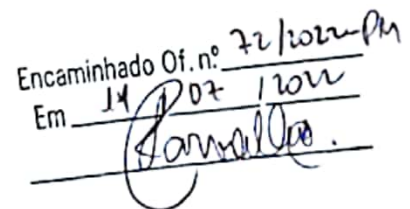 Encaminhado Of. n.º 72/2022-PM
Em 14 / 07 / 2022
Carvalho.